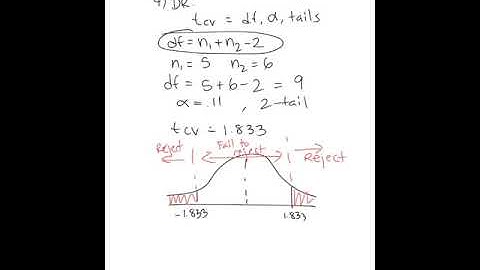 4) DR:
t cv = df, α, tails
df = n₁ + n₂ - 2
n₁ = 5 n₂ = 6
df = 5 + 6 - 2 = 9
α = .11 , 2-tail
t cv = 1.833
Reject Fail to reject Reject
-1.833 1.833